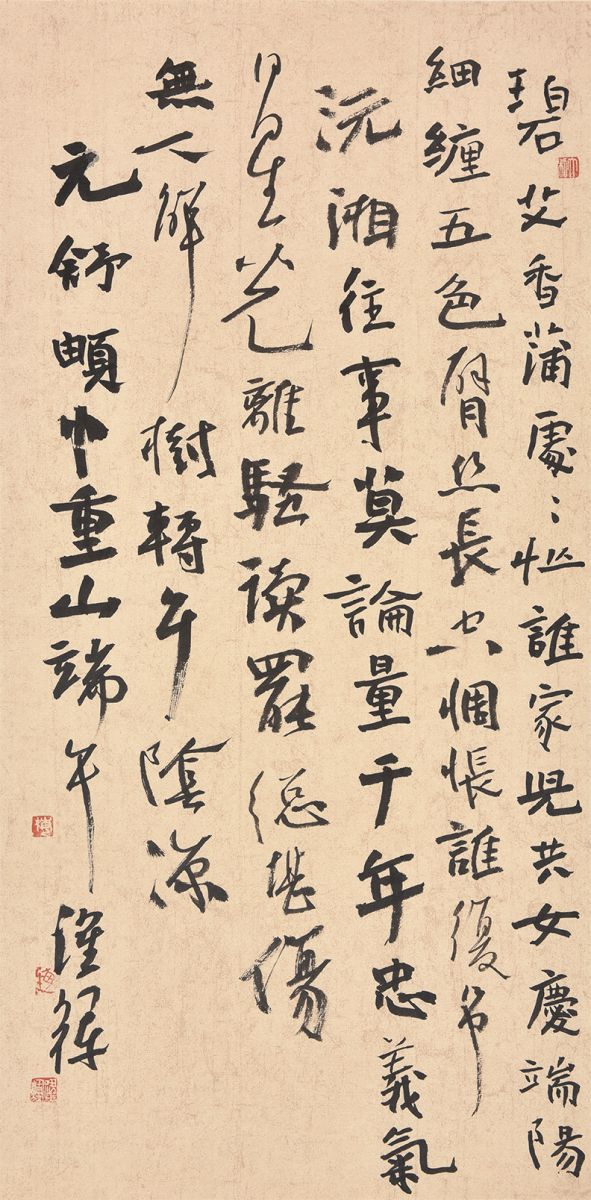 碧艾香蒲處〻忙誰家児共女慶端陽
細纏五色臂丝長空惆悵誰復吊
沅湘往事莫論量千年忠義氣
日星光離騷读罷總堪傷
無人解樹轉午陰凉
元舒頔小重山端午